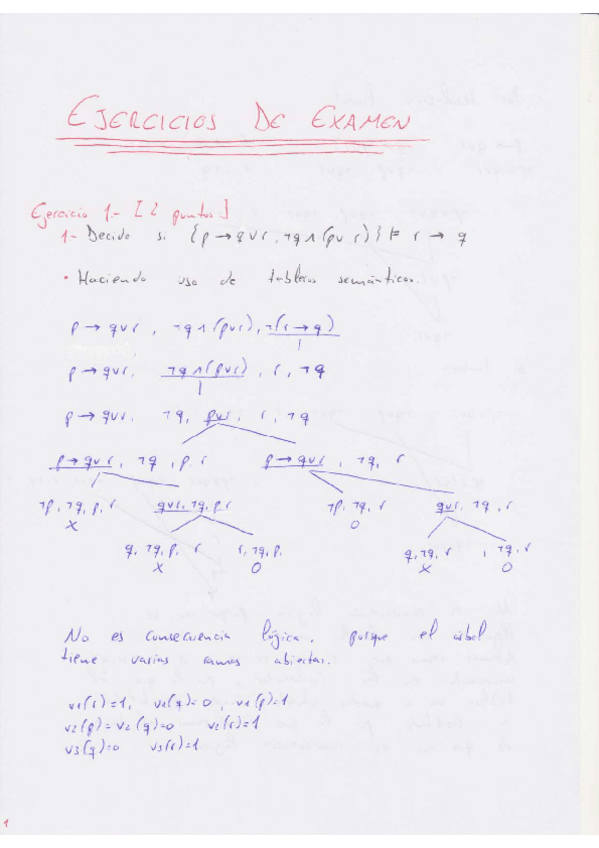 EJERCICIOS DE EXAMEN
Ejercicio 1.- [2 puntos]
1- Decide si {p → q∨r, ¬q∧(p∨r)} ⊨ r → q
• Haciendo uso de tableros semánticos.
p → q∨r, ¬q∧(p∨r), ¬(r→q)
p → q∨r, ¬q∧(p∨r), r, ¬q
p → q∨r, ¬q, p∨r, r, ¬q
p → q∨r, ¬q, p, r p → q∨r, ¬q, r
¬p, ¬q, p, r q∨r, ¬q, p, r ¬p, ¬q, r q∨r, ¬q, r
X O
q, ¬q, p, r r, ¬q, p. q, ¬q, r , ¬q, r
X O X O
No es consecuencia lógica, porque el árbol
tiene varias ramas abiertas.
v1(r)=1, v1(q)=0, v1(p)=1
v2(p)=v2(q)=0 v2(r)=1
v3(q)=0 v3(r)=1
1